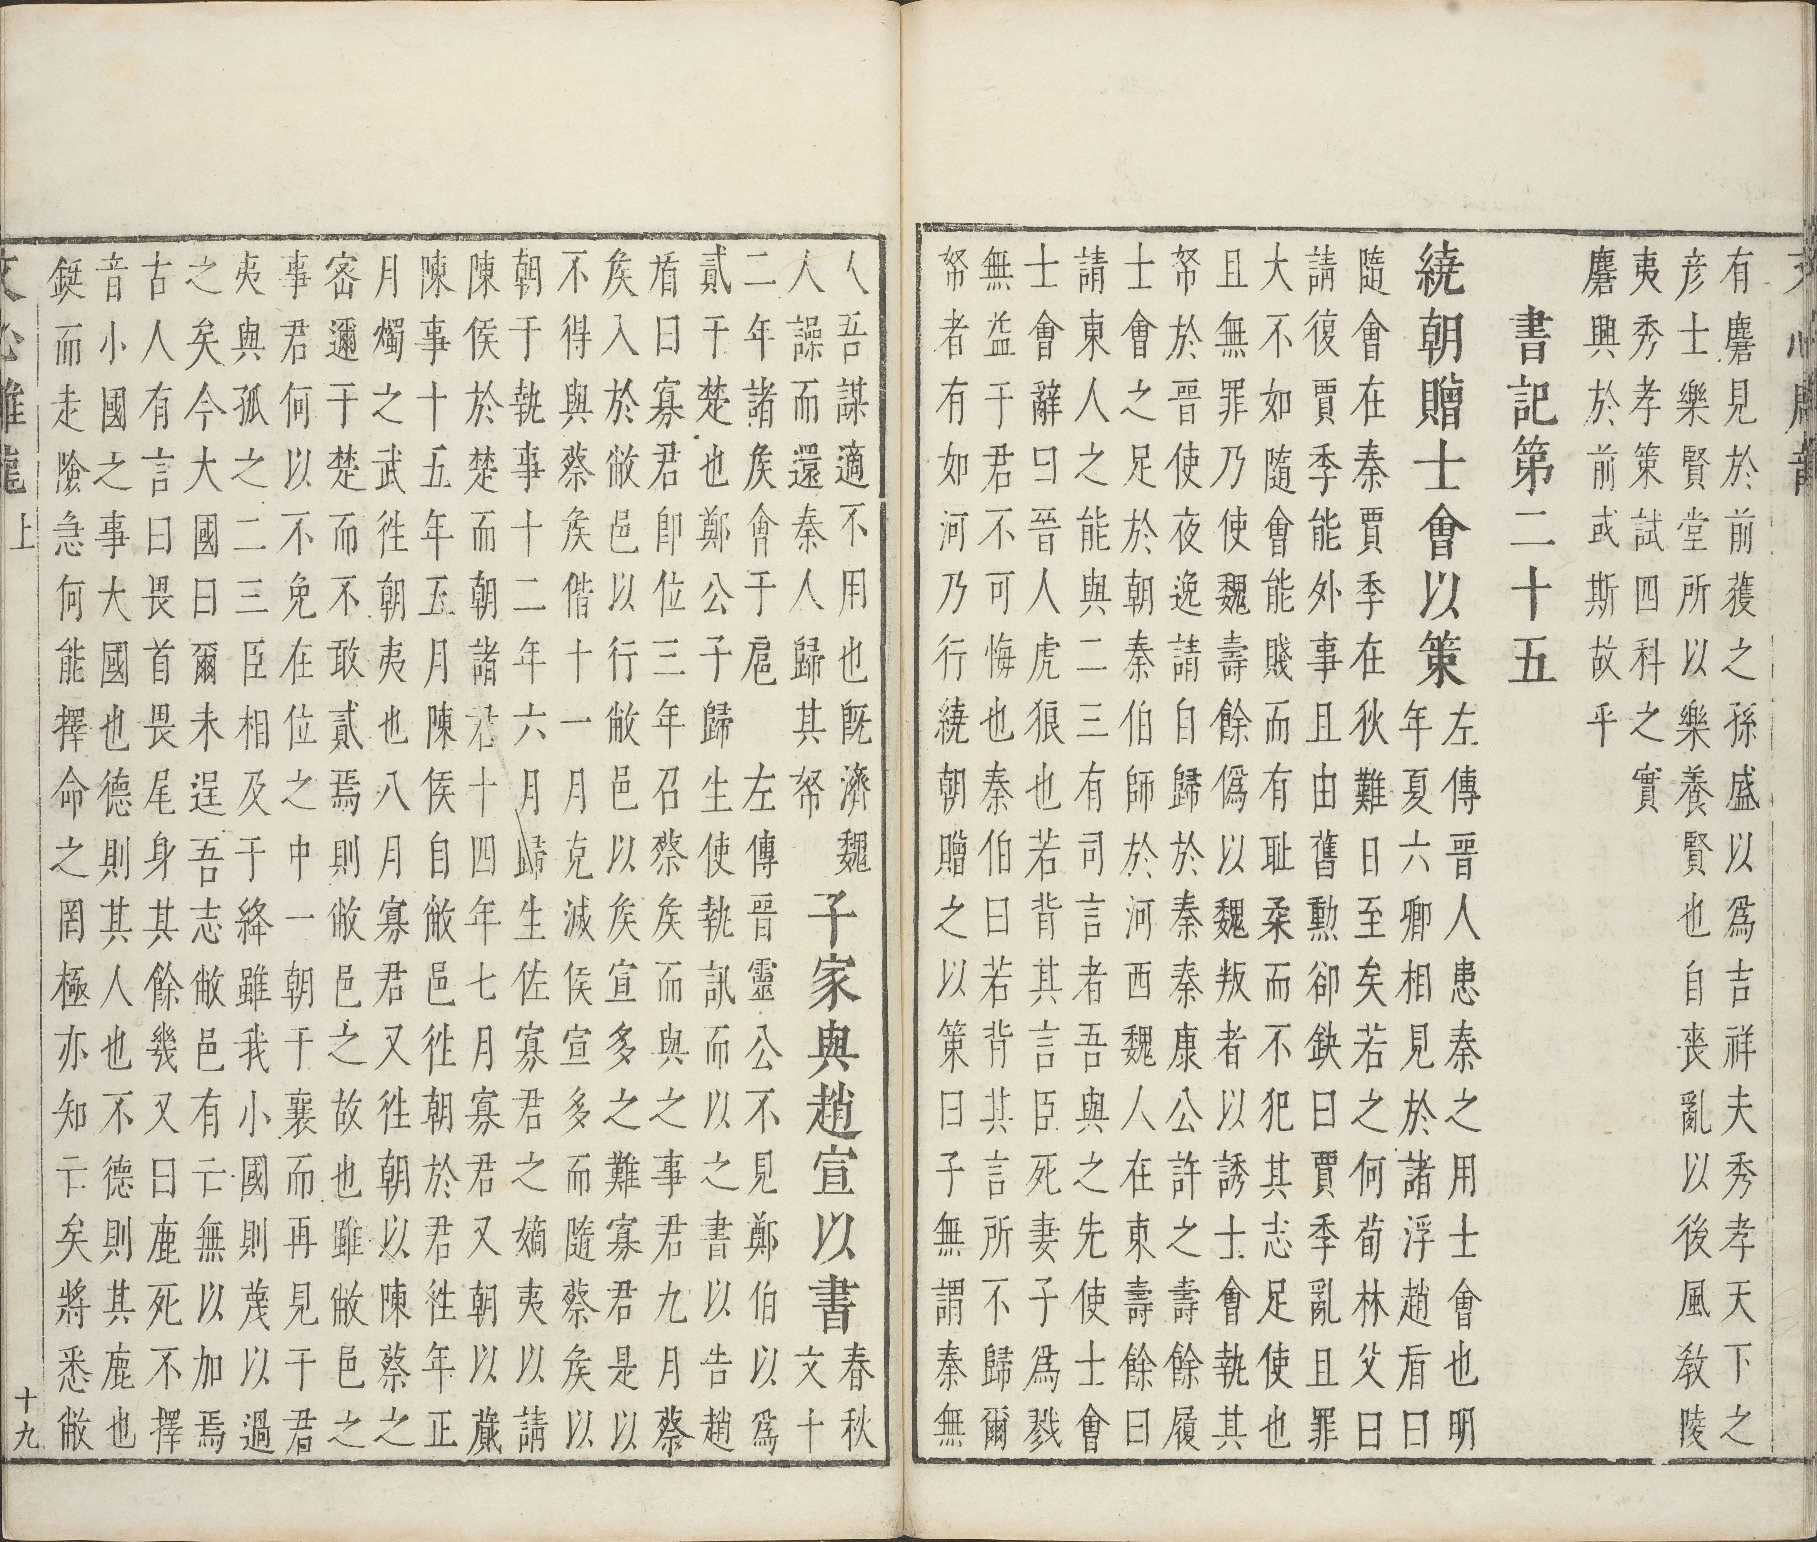 文心雕龍
有麏見於前獲之孫盛以爲吉祥夫秀孝天下之
彦士樂賢堂所以樂養賢也自喪亂以後風教陵
夷秀孝策試四科之實
麏興於前或斯故乎
書記第二十五
繞朝贈士會以策
左傳晉人患秦之用士會也明
年夏六卿相見於諸浮趙盾曰
隨會在秦賈季在狄難日至矣若之何荀林父曰
請復賈季能外事且由舊勳卻缺曰賈季亂且罪
大不如隨會能賤而有耻柔而不犯其志足使也
且無罪乃使魏壽餘偽以魏叛者以誘士會執其
帑於晉使夜逸請自歸於秦秦康公許之壽餘履
士會之足於朝秦伯師於河西魏人在東壽餘曰
請東人之能與二三有司言者吾與之先使士會
士會辭曰晉人虎狼也若背其言臣死妻子爲戮
無益于君不可悔也秦伯曰若背其言所不歸爾
帑者有如河乃行繞朝贈之以策曰子無謂秦無
人吾謀適不用也既濟魏
人譟而還秦人歸其帑
子家與趙宣以書
春秋
文十
二年諸矦會于扈 左傳晉靈公不見鄭伯以爲
貳于楚也鄭公子歸生使執訊而以之書以告趙
盾曰寡君即位三年召蔡矦而與之事君九月蔡
矦入於敝邑以行敝邑以矦宣多之難寡君是以
不得與蔡矦偕十一月克滅侯宣多而隨蔡矦以
朝于執事十二年六月歸生佐寡君之嫡夷以請
陳侯於楚而朝諸君十四年七月寡君又朝以蕆
陳事十五年五月陳侯自敝邑徃朝於君徃年正
月燭之武徃朝夷也八月寡君又徃朝以陳蔡之
宻邇于楚而不敢貳焉則敝邑之故也雖敝邑之
事君何以不免在位之中一朝于襄而再見于君
夷與孤之二三臣相及于絳雖我小國則蔑以過
之矣今大國曰爾未逞吾志敝邑有亡無以加焉
古人有言曰畏首畏尾身其餘幾又曰鹿死不擇
音小國之事大國也德則其人也不德則其鹿也
鋌而走險急何能擇命之罔極亦知亡矣將悉敝
文心雕龍上 十九